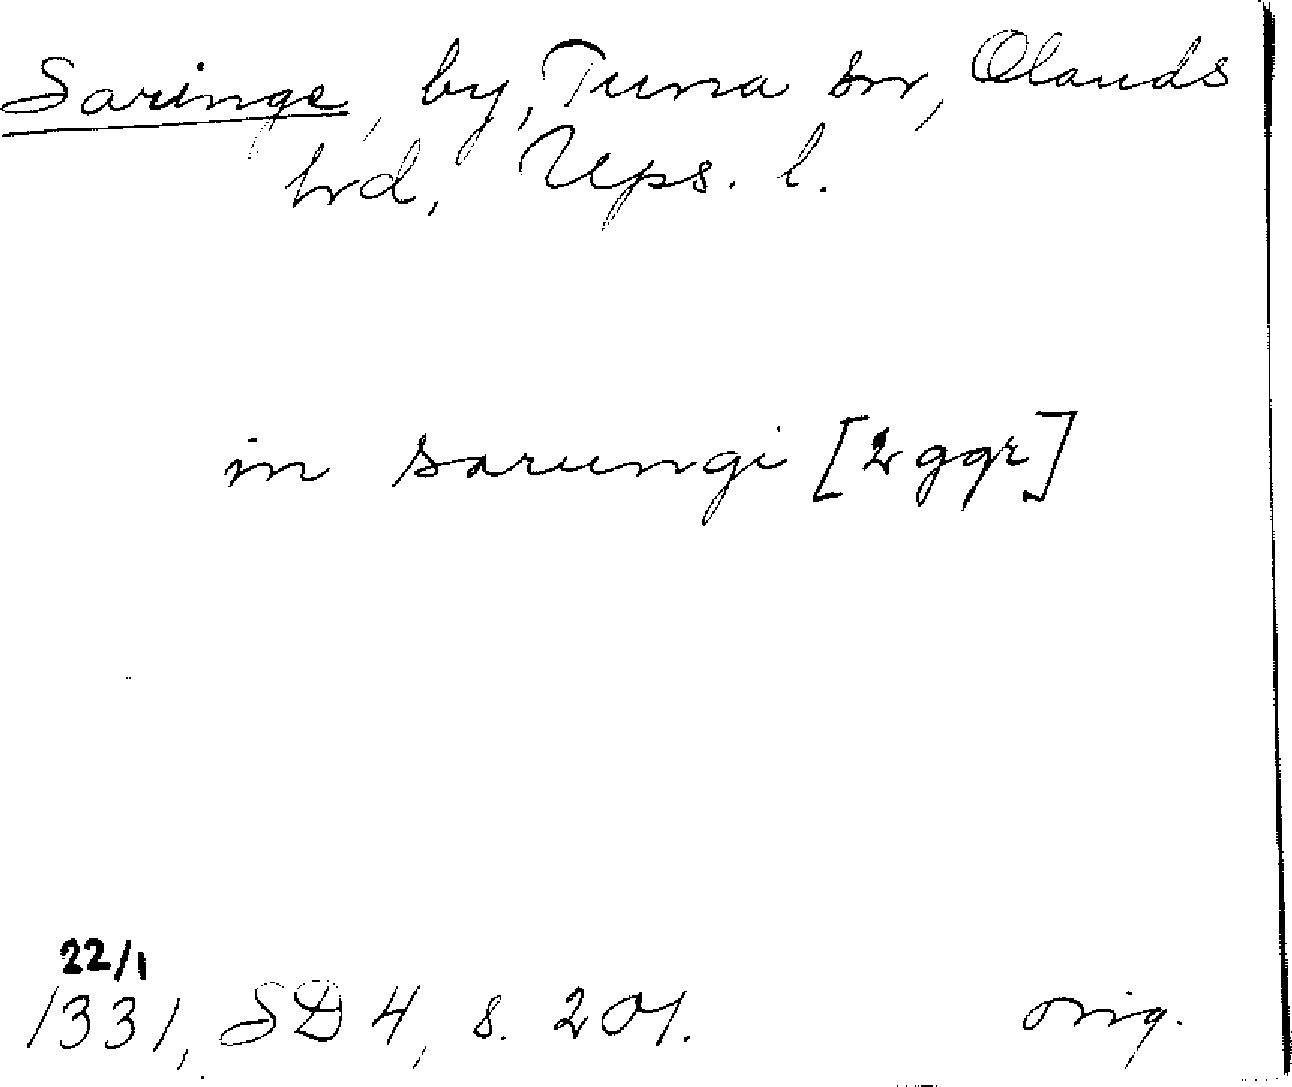 Saringe, by, Tuna sn, Olands
hrd, Ups. l.
in sarungi [2 ggr]
22/1
1331, SD 4, s. 201.
orig.